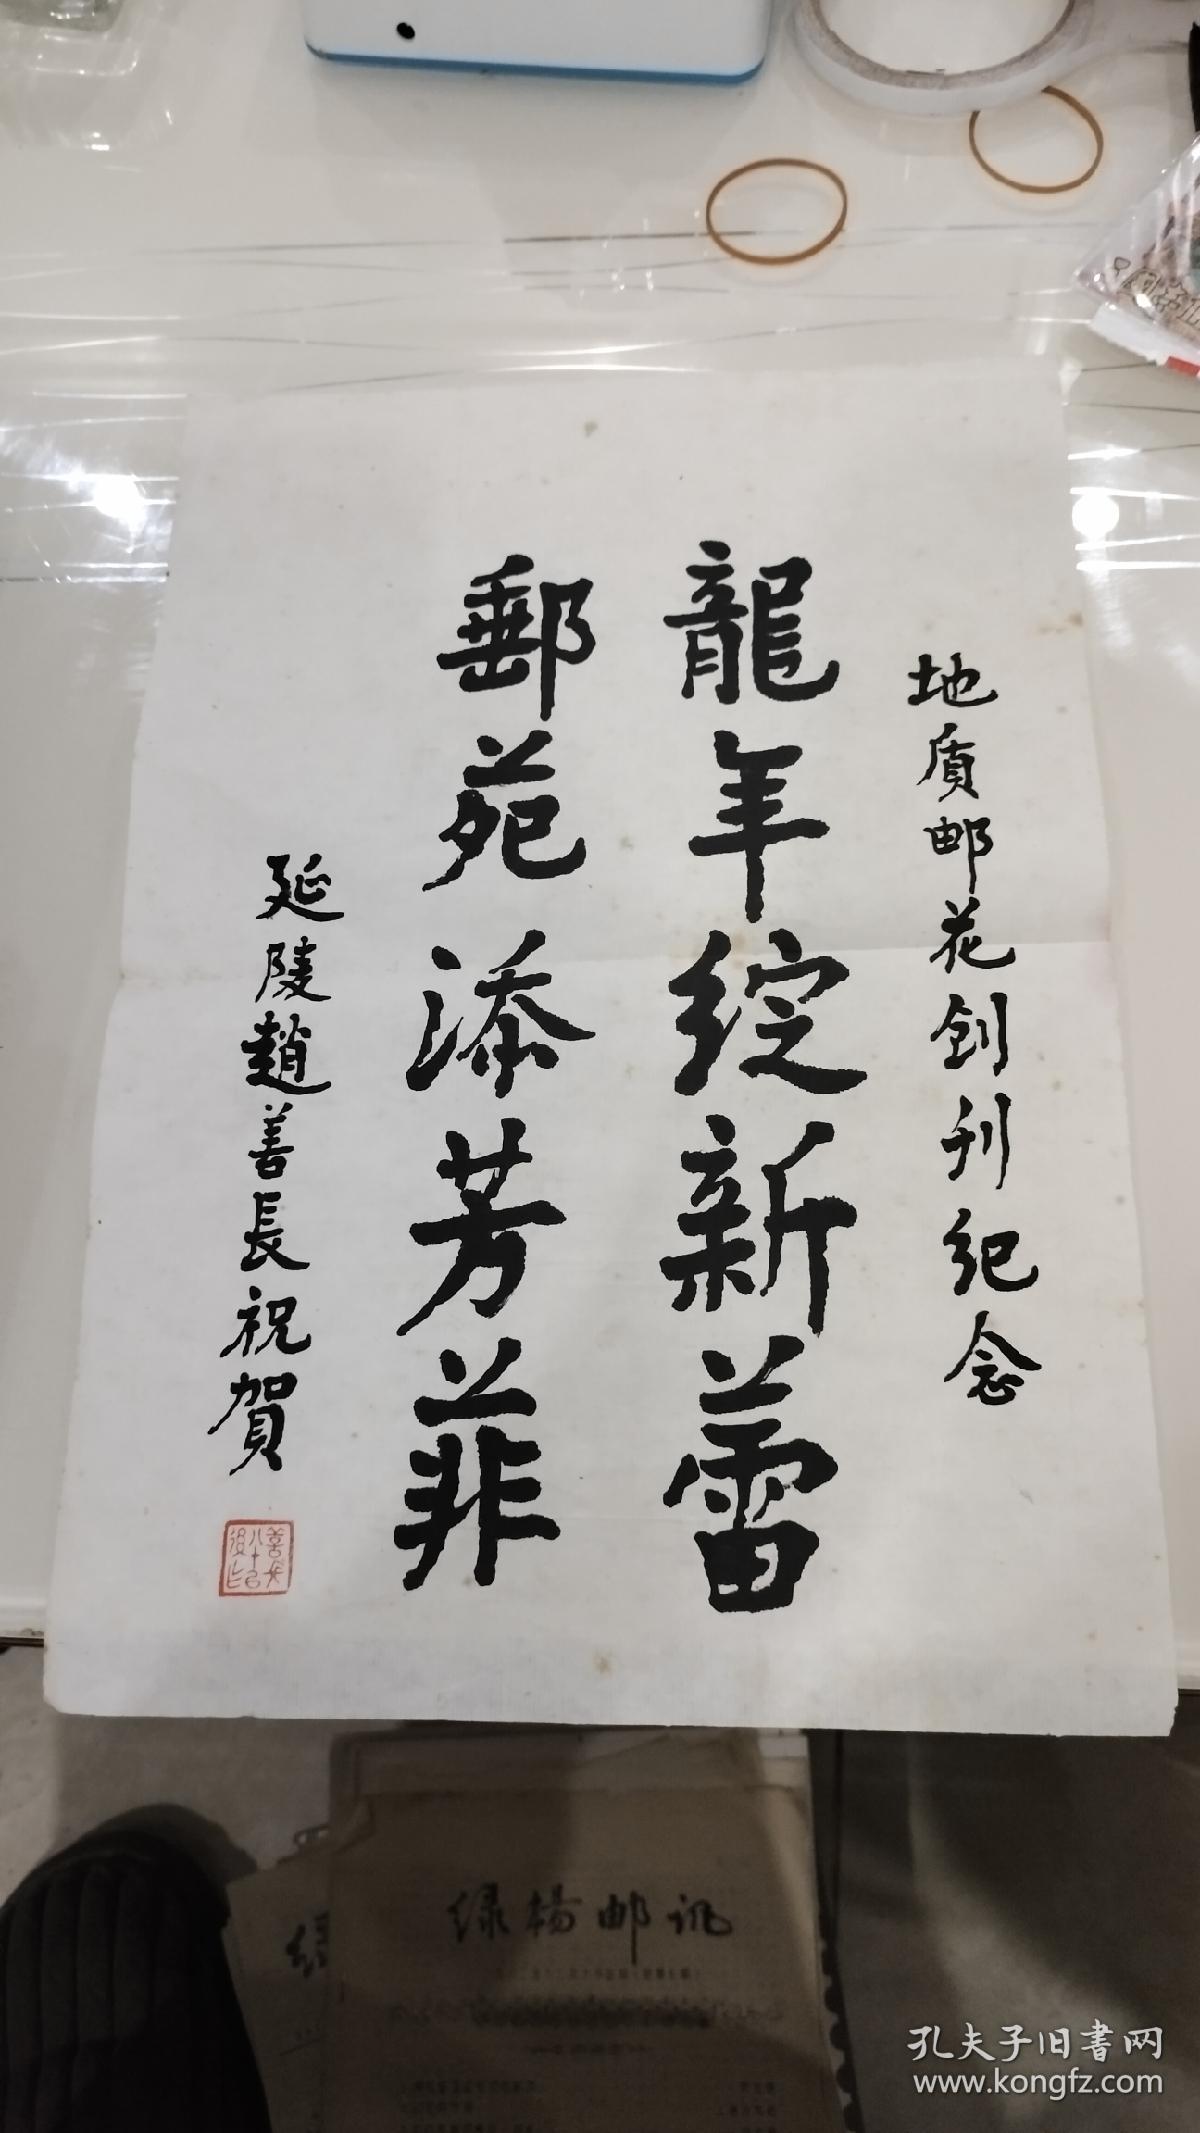 地质邮花创刊纪念
龍年綻新蕾
郵苑添芳菲
延陵趙善長祝賀
善長八十以後作
绿杨邮讯
孔夫子旧书网
www.kongfz.com